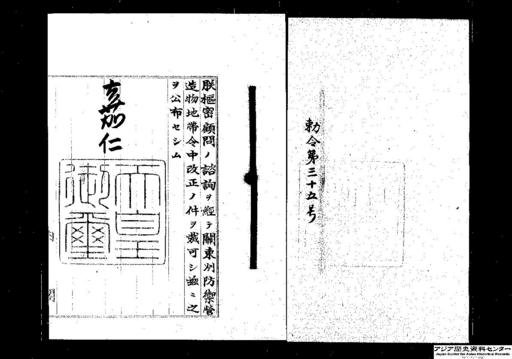 勅令第三十五号
朕樞密顧問ノ諮詢ヲ經テ關東州防禦營
造物地帶令中改正ノ件ヲ裁可シ茲ニ之
ヲ公布セシム
嘉仁
天皇
御璽
アジア歴史資料センター
Japan Center for Asian Historical Records